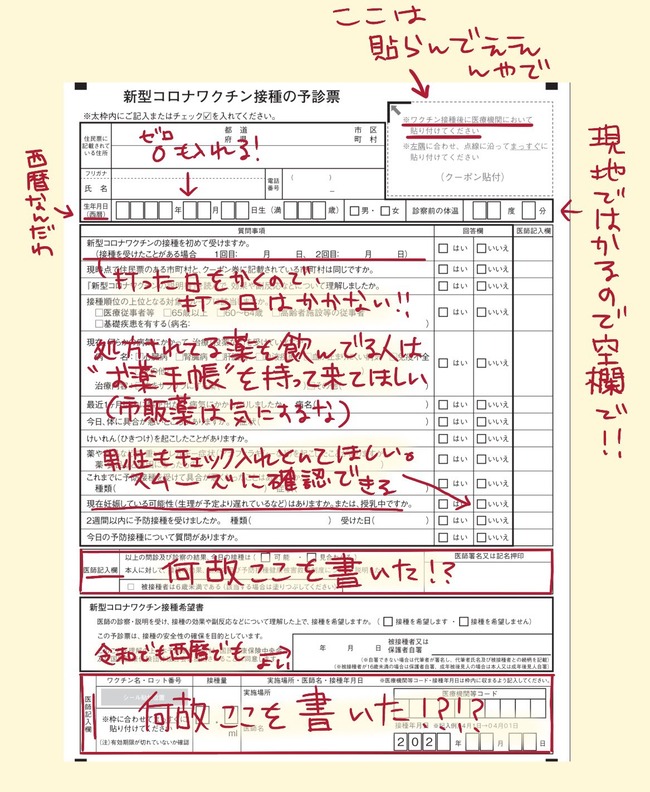 ここは
貼らんでええ
んやで
新型コロナワクチン接種の予診票
※太枠内にご記入またはチェック☑を入れてください。
住民票に
記載されて
いる住所
都 道
府 県
市 区
町 村
ゼロ
0も入れる!
フリガナ
氏 名
電話
番号
( )
−
※ワクチン接種後に医療機関において
貼り付けてください
※左隅に合わせ、点線に沿ってまっすぐに
貼り付けてください
(クーポン貼付)
西暦なんだわ
生年月日
(西暦)
年 月 日生 (満 歳)
□男・□女
診察前の体温
度 分
現地ではかるので空欄で!!
質問事項
回答欄
医師記入欄
新型コロナワクチンの接種を初めて受けますか。
(接種を受けたことがある場合 1回目: 月 日、2回目: 月 日)
□はい □いいえ
現時点で住民票のある市町村と、クーポン券に記載されている市町村は同じですか。
□はい □いいえ
打った日をかくので、
打つ日はかかない!!
□はい □いいえ
接種順位の上位となる対象
□医療従事者等 □65歳以上 □60〜64歳 □高齢者施設等の従事者
□基礎疾患を有する(病名: )
□はい □いいえ
処方されてる薬を飲んでる人は
“お薬手帳”を持って来てほしい
(市販薬は気にするな)
□はい □いいえ
最近1
病名( )
□はい □いいえ
今日、体に具合が悪いところがありますか。
□はい □いいえ
けいれん(ひきつけ)を起こしたことがありますか。
□はい □いいえ
男性もチェック入れといてほしい。
スムーズに確認できる
□はい □いいえ
これまでに予防接種を受けて具合が
種類(
□はい □いいえ
現在妊娠している可能性(生理が予定より遅れているなど)はありますか。または、授乳中ですか。
□はい □いいえ
2週間以内に予防接種を受けましたか。 種類( ) 受けた日( )
□はい □いいえ
今日の予防接種について質問がありますか。
□はい □いいえ
医師記入欄
以上の問診及び診察の結果、今日の接種は(□可能・□見合わせる)
本人に対して、
□ 被接種者は6歳未満である(該当する場合は塗りつぶしてください)
医師署名又は記名押印
何故ここを書いた!?
新型コロナワクチン接種希望書
医師の診察・説明を受け、接種の効果や副反応などについて理解した上で、接種を希望しますか。(□接種を希望します・□接種を希望しません)
この予診票は、接種の安全性の確保を目的としています。
令和でも西暦でもよい
年 月 日
被接種者又は
保護者自署
(※自署できない場合は代筆者が署名し、代筆者氏名及び被接種者との続柄を記載)
(※被接種者が16歳未満の場合は保護者自署、成年被後見人の場合は本人又は成年後見人自署)
医師記入欄
ワクチン名・ロット番号
接種量
実施場所・医師名・接種年月日
※医療機関等コード・接種年月日は枠内に収まるよう記入してください。
シール貼付位置
※枠に合わせてまっすぐに
貼り付けてください
(注)有効期限が切れていないか確認
ml
実施場所
医師名
医療機関等コード
接種年月日 ※記入例)4月1日→04月01日
202 年 月 日
何故ここを書いた!?!?